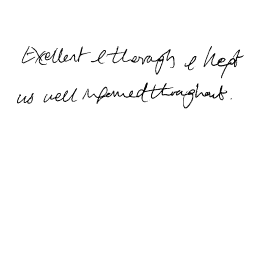 Excellent & thorough & kept
us well informed throughout.